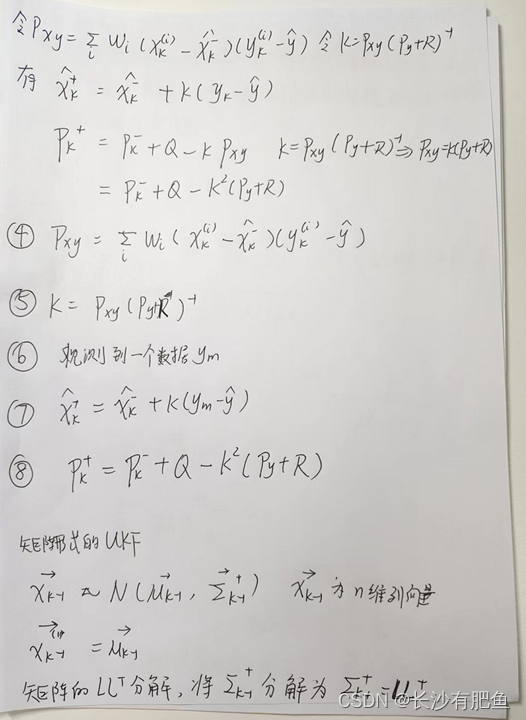 令 Pxy = Σ_i Wi (x_k^(i) - x̂_k^-)(y_k^(i) - ŷ) 令 K=Pxy(Py+R)^-1
有 x̂_k^+ = x̂_k^- + K(y_k - ŷ)
P_k^+ = P_k^- + Q - K Pxy K=Pxy(Py+R)^-1 ⇒ Pxy=K(Py+R)
= P_k^- + Q - K²(Py+R)
④ Pxy = Σ_i Wi (x_k^(i) - x̂_k^-)(y_k^(i) - ŷ)
⑤ K = Pxy (Py+R)^-1
⑥ 观测到一个数据 ym
⑦ x̂_k^+ = x̂_k^- + K(ym - ŷ)
⑧ P_k^+ = P_k^- + Q - K²(Py+R)
矩阵形式的UKF
x⃗_k-1 ~ N(μ⃗_k-1, Σ_k-1^+) x⃗_k-1 为n维列向量
x⃗_k-1^(1) = μ⃗_k-1
矩阵的LL^T分解,将Σ_k-1^+分解为Σ_k-1^+=LL^T
CSDN @长沙有肥鱼